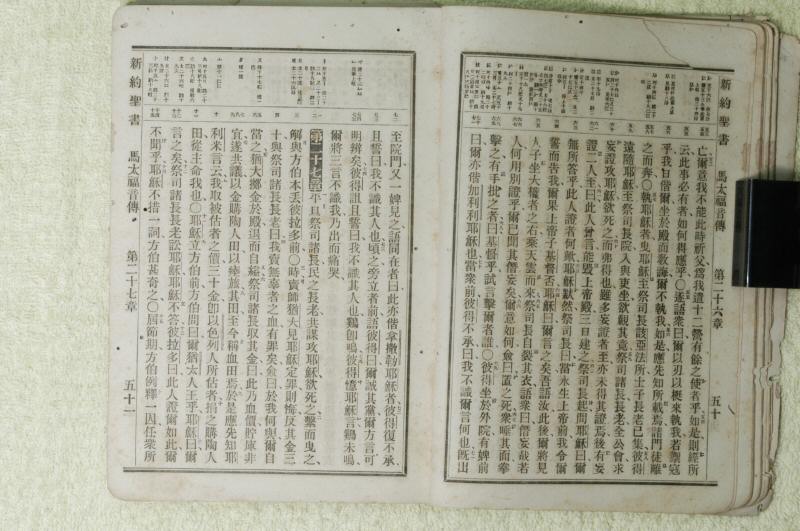 新約聖書 馬太福音傳 第二十六章 五十
亡爾意我不能此時祈父爲我遣十二營有餘之使者乎如是則經所
云此事必有者如何得應乎○遂語衆曰爾以刃以梃來執我若禦寇
乎我日偕爾坐於殿而敎誨爾不執我如是應先知所載焉諸門徒離
之而奔○執耶穌者曳耶穌至祭司長該亞法所士子長老已集彼得
遠隨耶穌至祭司長院入與吏坐欲觀其竟祭司諸長長老全公會求
妄證攻耶穌欲死之而弗得也雖多妄證者至亦未得其證焉後有妄
證二人至曰此人曾言能毀上帝殿三日建之祭司長起問耶穌曰爾
無所答乎此人證者何耶穌默然祭司長曰當永生上帝前我令爾
誓而告我爾果上帝子基督否耶穌曰爾言之矣吾語汝此後爾將見
人子坐大權者之右乘天雲而來祭司長自裂其衣語衆曰僭妄哉若
人何用別證乎爾已聞其僭妄矣爾意如何僉曰置之死衆唾其面拳
擊之有手批之者曰基督乎試言擊爾者誰○彼得坐於外院有婢前
曰爾亦偕加利利耶穌也當衆前彼得不承曰我不識爾言何也旣出
至院門又一婢見之語同在者曰此亦偕拿撒勒耶穌者彼得復不承
且誓曰我不識其人也頃之旁立者前語彼得曰爾誠其黨爾方言可
明辨矣彼得詛且誓曰我不識其人也鷄卽鳴彼得憶耶穌言鷄未鳴
爾將三言不識我乃出而痛哭
第二十七章平旦祭司諸長民之長老共謀攻耶穌欲死之繫而曳之
解與方伯本丟彼拉多前○時賣師猶大見耶穌定罪則悔反其金三
十與祭司諸長長老曰我賣無辜者之血有罪矣僉曰於我何與爾自
當之猶大擲金於殿退而自縊祭司諸長取其金曰此乃血價貯庫非
宜遂共議以金購陶人田以瘞旅其田至今稱血田焉於是應先知耶
利米言云我取被估者之價三十金卽以色列人所估者捐之購陶人
田從主命我也○耶穌立方伯前方伯問曰爾猶太人王乎耶穌曰爾
言之矣祭司諸長長老訟耶穌耶穌不答彼拉多曰此人證爾如此爾
不聞乎耶穌不措一詞方伯甚奇之○屆節期方伯例釋一囚任衆所
新約聖書 馬太福音傳 第二十七章 五十一